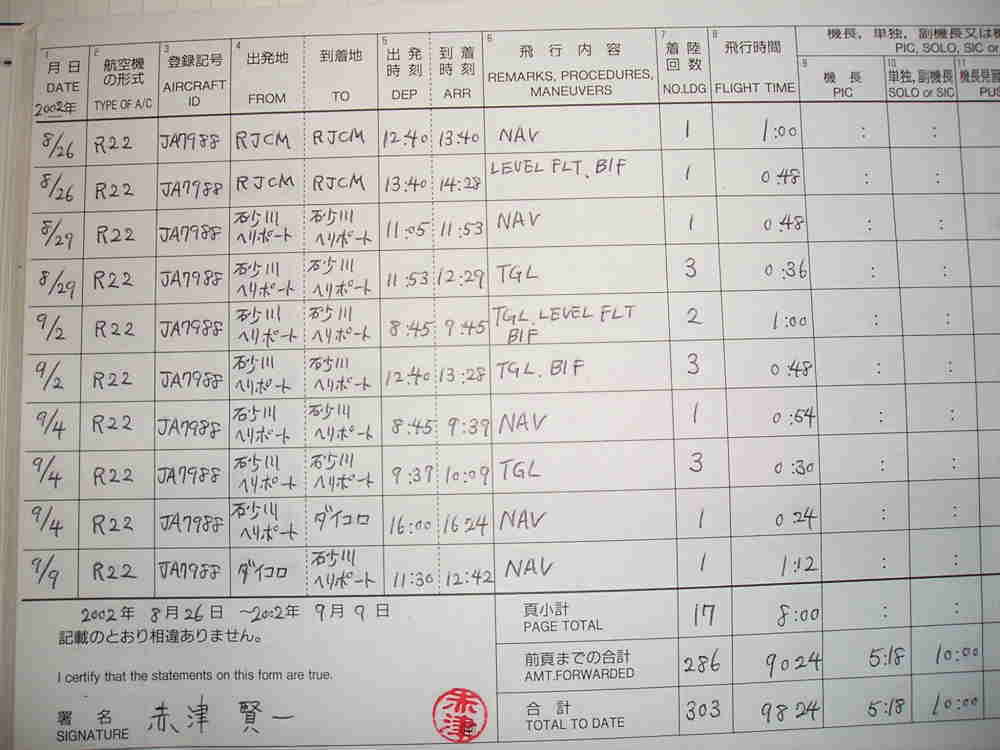 1 月日 DATE 2002年 2 航空機の形式 TYPE OF A/C 3 登録記号 AIRCRAFT ID 4 出発地 FROM 到着地 TO 5 出発時刻 DEP 到着時刻 ARR 6 飛行内容 REMARKS, PROCEDURES, MANEUVERS 7 着陸回数 NO.LDG 8 飛行時間 FLIGHT TIME 機長, 単独, 副機長又は PIC, SOLO, SIC or 9 機長 PIC 10 単独, 副機長 SOLO or SIC 11 機長見習 PUS
8/26 R22 JA7988 RJCM RJCM 12:40 13:40 NAV 1 1:00 : :
8/26 R22 JA7988 RJCM RJCM 13:40 14:28 LEVEL FLT. BIF 1 0:48 : :
8/29 R22 JA7988 石少川ヘリポート 石少川ヘリポート 11:05 11:53 NAV 1 0:48 : :
8/29 R22 JA7988 石少川ヘリポート 石少川ヘリポート 11:53 12:29 TGL 3 0:36 : :
9/2 R22 JA7988 石少川ヘリポート 石少川ヘリポート 8:45 9:45 TGL. LEVEL FLT BIF 2 1:00 : :
9/2 R22 JA7988 石少川ヘリポート 石少川ヘリポート 12:40 13:28 TGL. BIF 3 0:48 : :
9/4 R22 JA7988 石少川ヘリポート 石少川ヘリポート 8:45 9:39 NAV 1 0:54 : :
9/4 R22 JA7988 石少川ヘリポート 石少川ヘリポート 9:39 10:09 TGL 3 0:30 : :
9/4 R22 JA7988 石少川ヘリポート ダイコロ 16:00 16 24 NAV 1 0 24 : :
9/9 R22 JA7988 ダイコロ 石少川ヘリポート 11:30 12:42 NAV 1 1:12 : :
2002年 8月26日 ~2002年 9月9日 頁小計 PAGE TOTAL 17 8:00 : :
記載のとおり相違ありません。
前頁までの合計 AMT.FORWARDED 286 90 24 5:18 10:00
I certify that the statements on this form are true.
署名 SIGNATURE 赤津 賢一 赤津 合計 TOTAL TO DATE 303 98 24 5:18 10:00